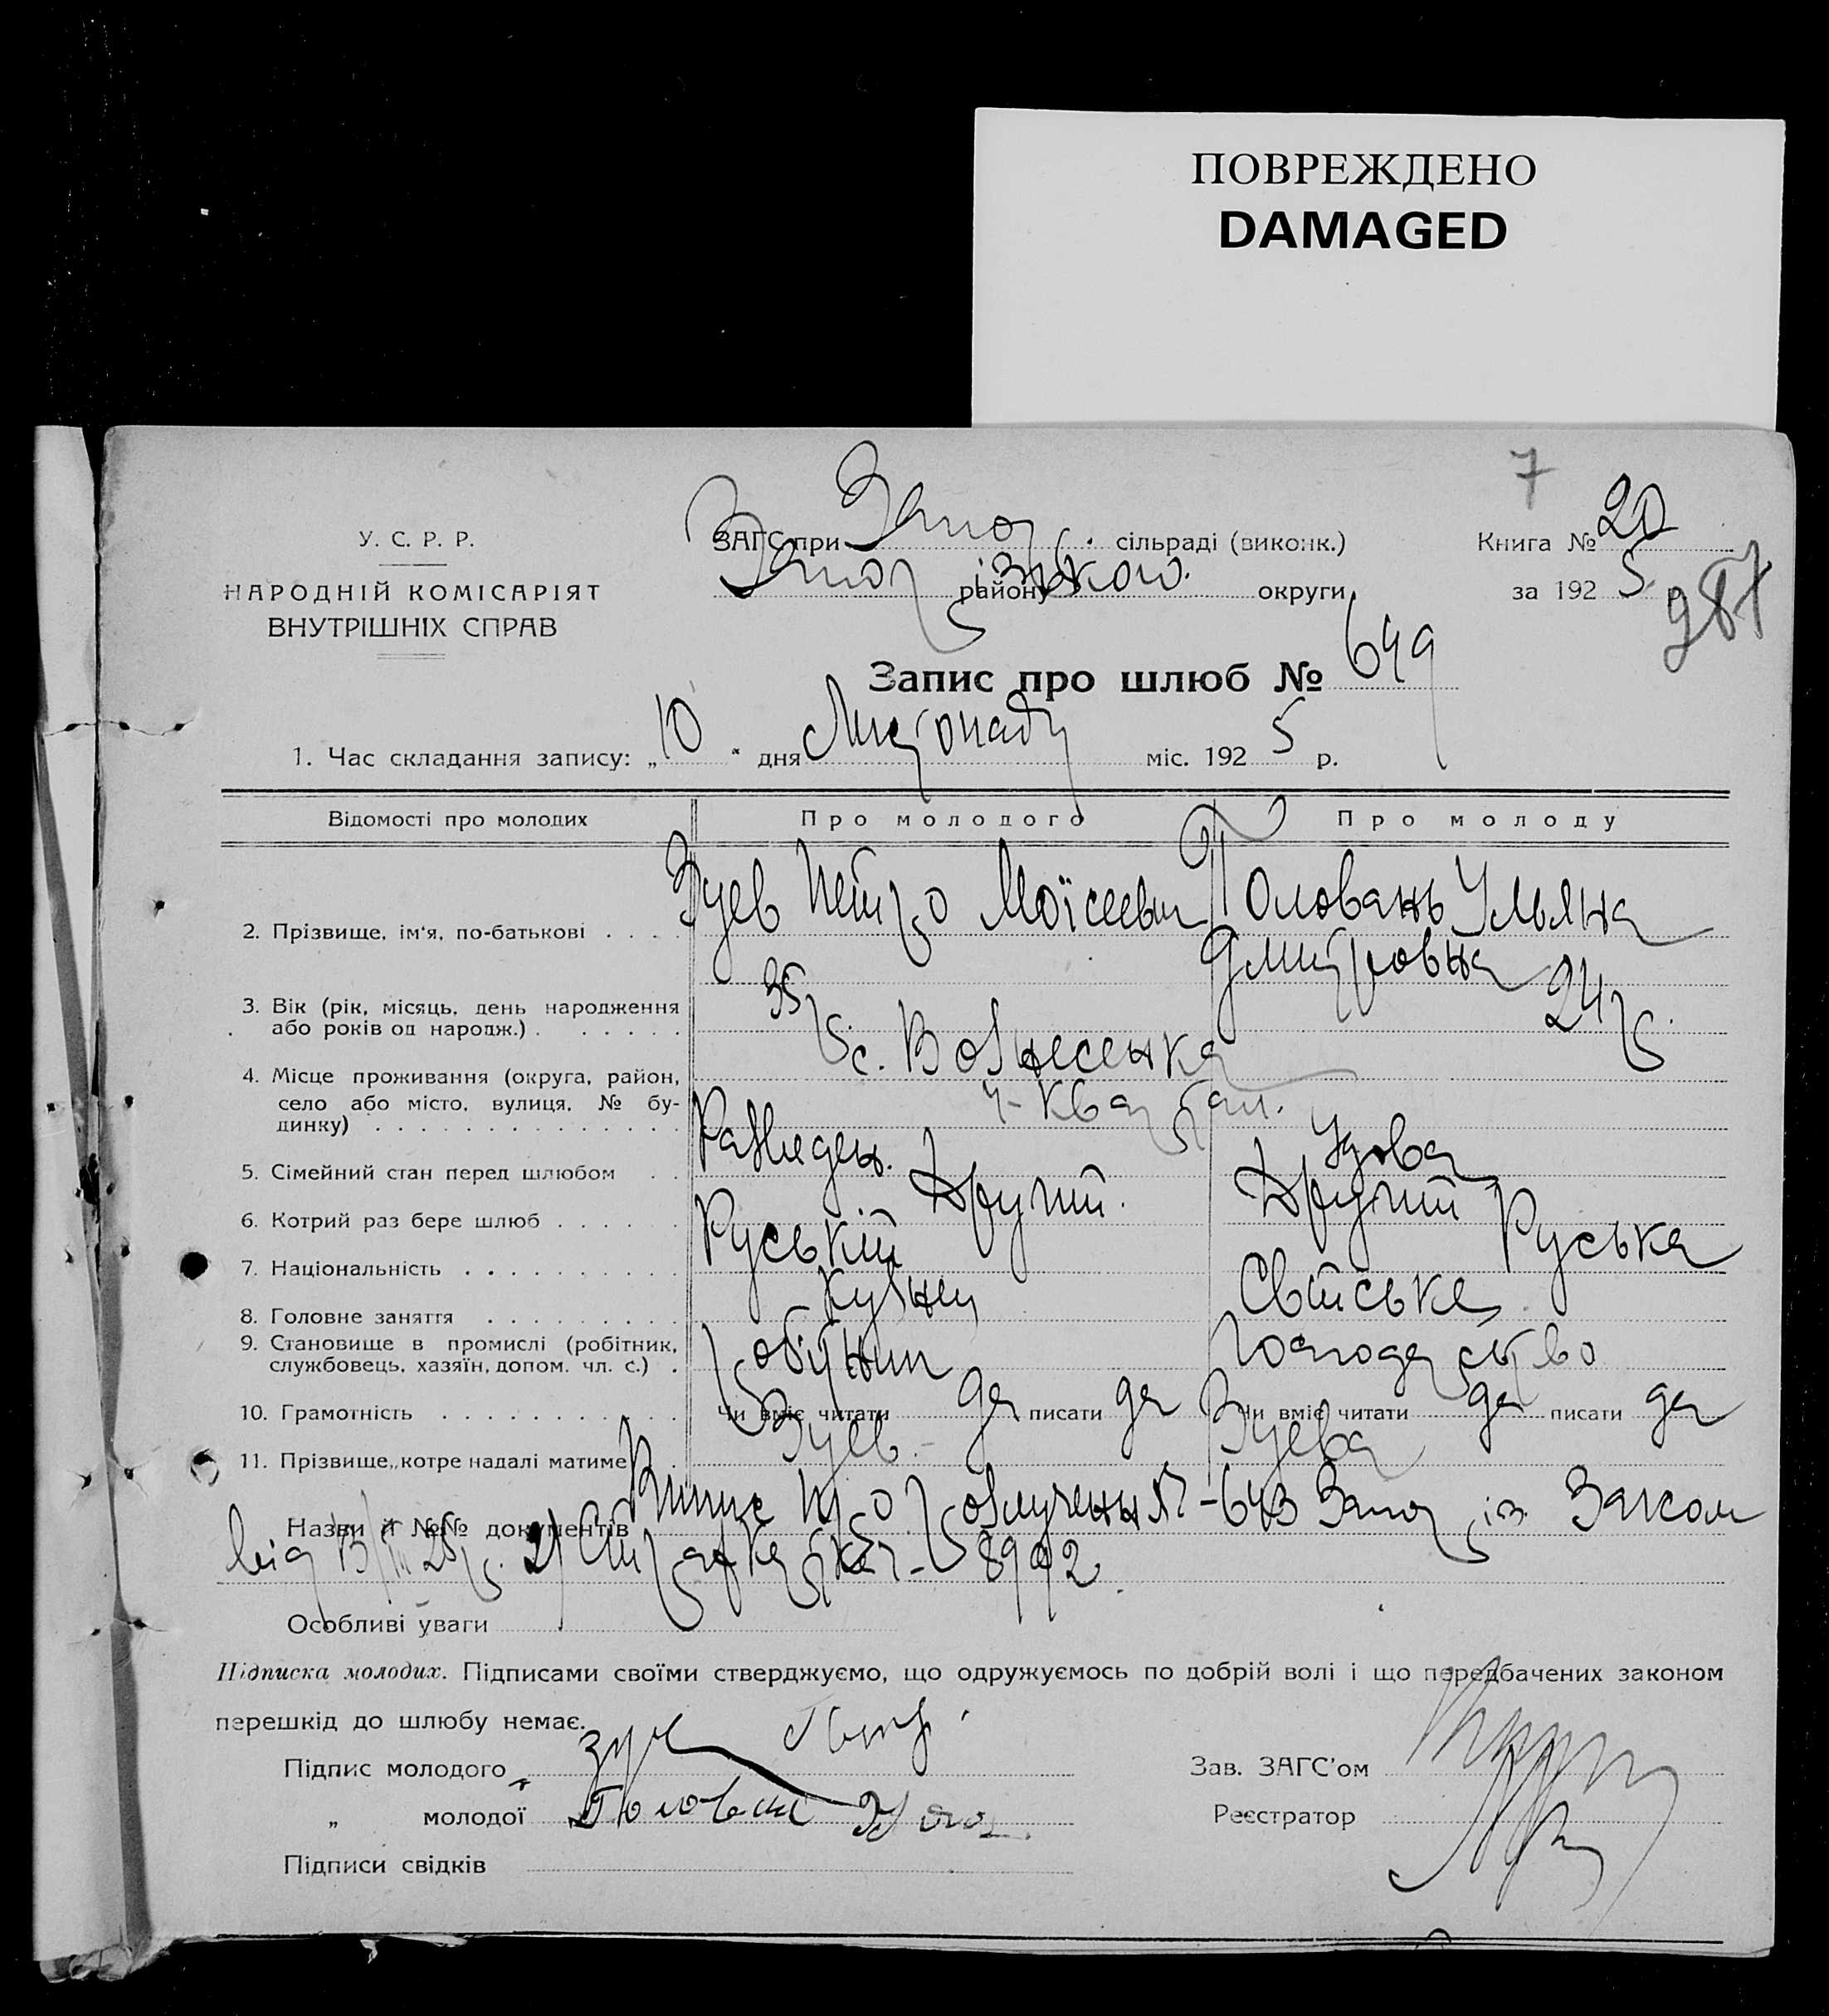 ПОВРЕЖДЕНО
DAMAGED
7
У. С. Р. Р.
НАРОДНІЙ КОМІСАРІЯТ
ВНУТРІШНІХ СПРАВ
ЗАГС при Запор. сільраді (виконк.)
Запорізького району округи
Книга № 20
за 1925 р.
987
Запис про шлюб № 649
1. Час складання запису: „10" дня Листопаду міс. 1925 р.
Відомості про молодих Про молодого Про молоду
2. Прізвище, ім'я, по-батькові Зуев Петро Моїсеевич Половань Ульяна
Дмитровна
3. Вік (рік, місяць, день народження
або років од народж.) 35 р. 24 р.
4. Місце проживання (округа, район,
село або місто, вулиця, № бу-
динку) с. Вознесенка
4-квартал.
5. Сімейний стан перед шлюбом Разведен. Удова
6. Котрий раз бере шлюб Другий. Другий
7. Національність Руський Руська
8. Головне заняття Кузнец Світське
9. Становище в промислі (робітник,
службовець, хазяїн, допом. чл. с.) робітник господарство
10. Грамотність Чи вміє читати да писати да Чи вміє читати да писати да
11. Прізвище, котре надалі матиме Зуев. Зуева
Назви й №№ документів Випис про розлучення №-643 Запор із. Загсом
від 25 р. 2) Страхкартка 8992.
Особливі уваги
Підписка молодих. Підписами своїми стверджуємо, що одружуємось по добрій волі і що передбачених законом
перешкід до шлюбу немає.
Підпис молодого Зуев Петр
„ молодої Половань
Підписи свідків
Зав. ЗАГС'ом
Реєстратор